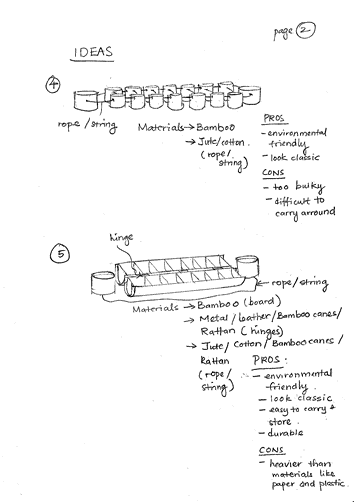 page 2
IDEAS
4
rope/string
Materials → Bamboo
→ Jute/cotton.
(rope/
string)
PROS
- environmental
friendly
- look classic
CONS
- too bulky
- difficult to
carry arround
5
hinge
rope/string
Materials → Bamboo (board)
→ Metal/leather/Bamboo canes/
Rattan (hinges)
→ Jute/Cotton/Bamboo canes/
Rattan
(rope/
string)
PROS:
- environmental
friendly.
- look classic
- easy to carry &
store.
- durable
CONS
- heavier than
materials like
paper and plastic.